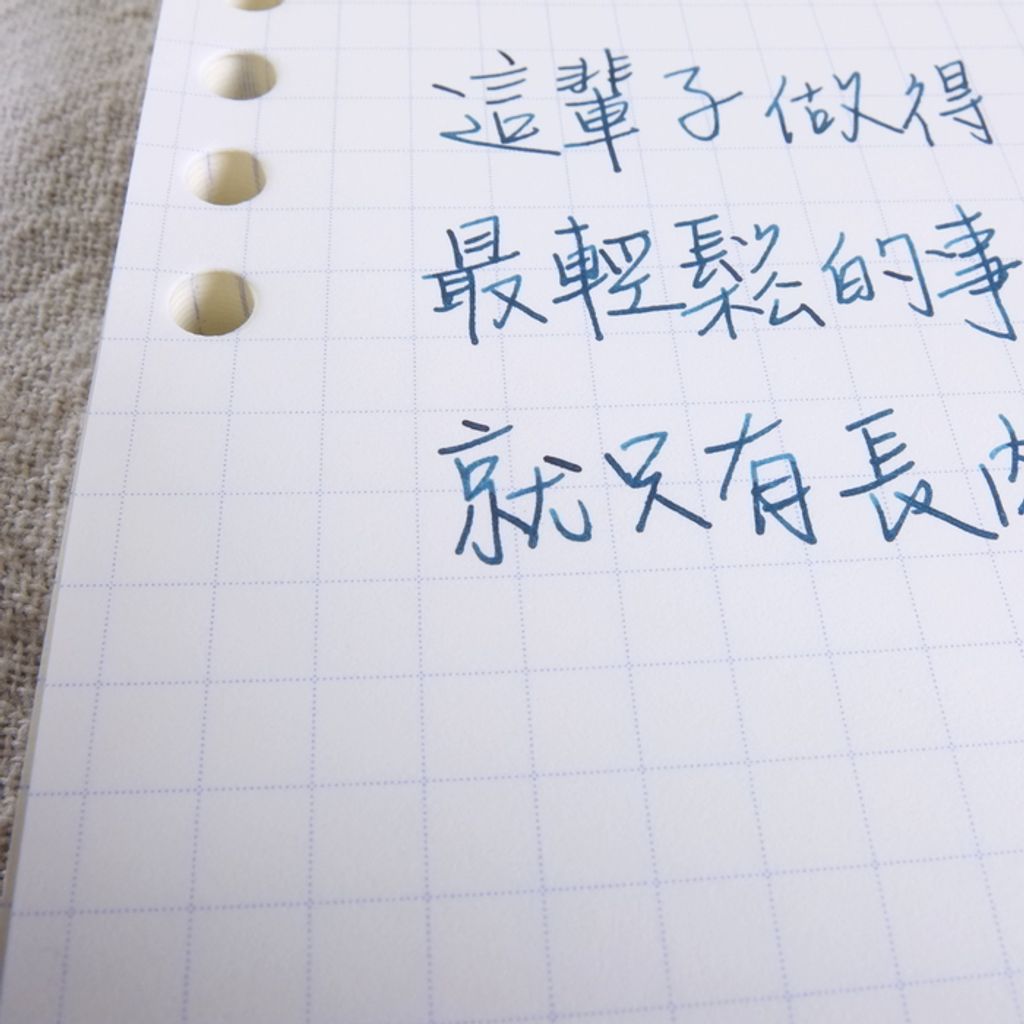 這輩子做得
最輕鬆的事
就只有長